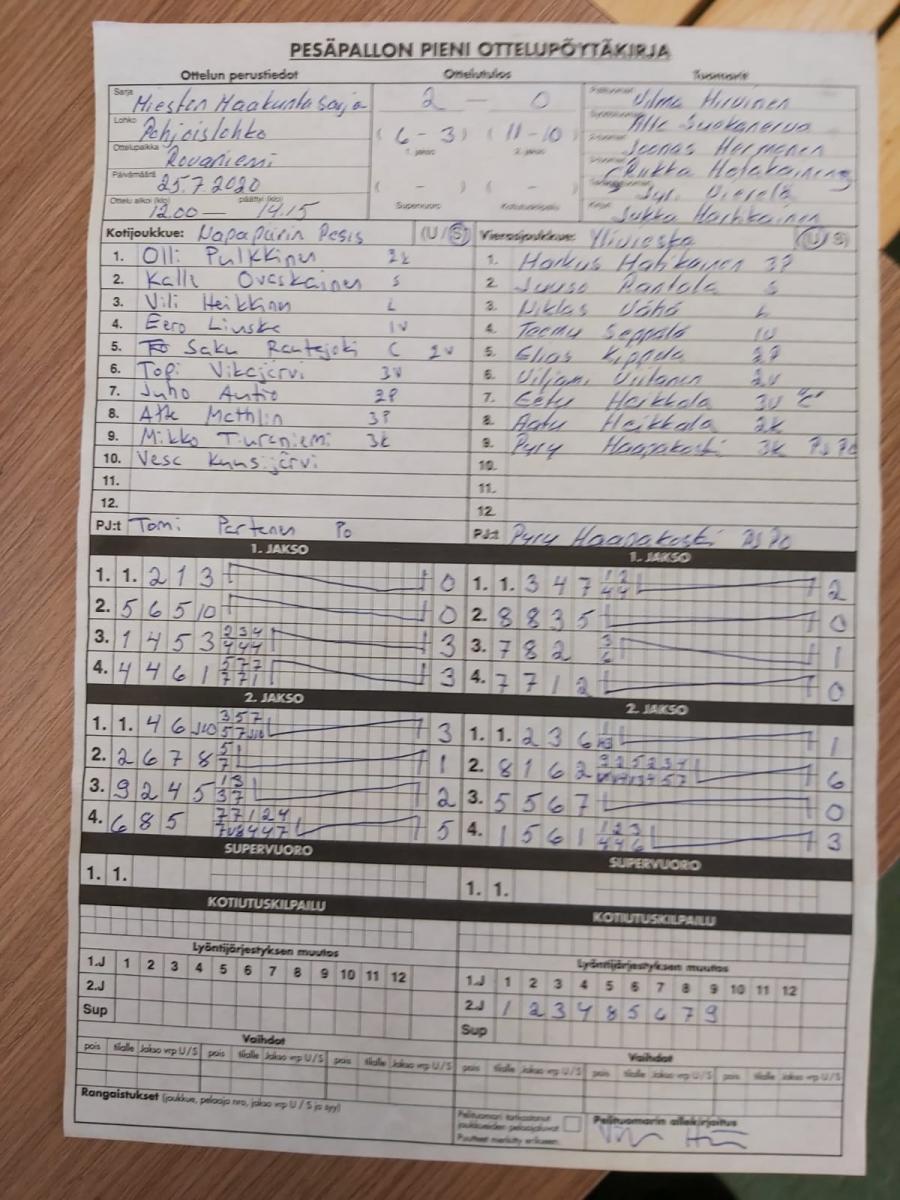 PESÄPALLON PIENI OTTELUPÖYTÄKIRJA
Ottelun perustiedot Ottelutulos Tuomarit
Sarja Miesten Maakuntasarja 2 - 0 Vilma Hirvinen
Lohko Pohjoislohko (6 - 3) (11 - 10)
1. jakso 2. jakso
Ottelupaikka Rovaniemi Joonas
Päivämäärä 25.7.2020 ( - ) ( - )
Ottelu alkoi (klo) 12.00 — päättyi (klo) 14.15 Supervuoro Kotiutuskilpailu Jukka
Kotijoukkue: Napapiirin Pesis (U/S) Vierasjoukkue: Ylivieska (U/S)
1. Olli Pulkkinen 2k 1. Markus 3P
2. Kalle Ovaskainen S 2. Juuso Rantala S
3. Vili Heikkinen L 3. Niklas Vähä L
4. Eero Liuska 1V 4. Teemu Seppälä 1V
5. Saku Rautajoki C 2v 5. Elias Kippola 2P
6. Topi Vikajärvi 3V 6. Viljami Viitanen 2V
7. Juho Autio 2P 7. Eetu 3V "C"
8. Atte 3P 8. Aatu Heikkala 2k
9. Mikko Turaniemi 3k 9. Pyry Haarakoski 3k PJ Po
10. Vesa Kuusijärvi 10.
11. 11.
12. 12.
PJ:t Tomi Partanen Po PJ:t Pyry Haarakoski PJ Po
1. JAKSO 1. JAKSO
1. 1. 2 1 3 0 1. 1. 3 4 7 1 2 4 4 2
2. 5 6 5 10 0 2. 8 8 3 5 0
3. 1 4 5 3 2 3 4 4 4 4 3 3. 7 8 2 3 6 1
4. 4 4 6 1 5 7 7 7 7 1 3 4. 7 7 1 2 0
2. JAKSO 2. JAKSO
1. 1. 4 6 J10 3 5 7 5 7 J10 3 1. 1. 2 3 6 1
2. 2 6 7 8 5 7 1 2. 8 1 6 2 6
3. 9 2 4 5 1 3 3 7 2 3. 5 5 6 7 0
4. 6 8 5 7 7 1 2 4 5 4. 1 5 6 1 1 2 3 4 4 6 3
SUPERVUORO SUPERVUORO
1. 1. 1. 1.
KOTIUTUSKILPAILU KOTIUTUSKILPAILU
Lyöntijärjestyksen muutos Lyöntijärjestyksen muutos
1.J 1 2 3 4 5 6 7 8 9 10 11 12 1.J 1 2 3 4 5 6 7 8 9 10 11 12
2.J 2.J 1 2 3 4 8 5 6 7 9
Sup Sup
Vaihdot Vaihdot
pois tilalle Jakso vrp U/S pois tilalle Jakso vrp U/S pois tilalle Jakso vrp U/S pois tilalle Jakso vrp U/S pois tilalle Jakso vrp U/S pois tilalle Jakso vrp U/S
Rangaistukset (joukkue, pelaaja nro, jakso vrp U / S ja syy)
Pelituomari tarkastanut joukkueiden pelaajaluvat Pelituomarin allekirjoitus
Puutteet merkitty erikseen.